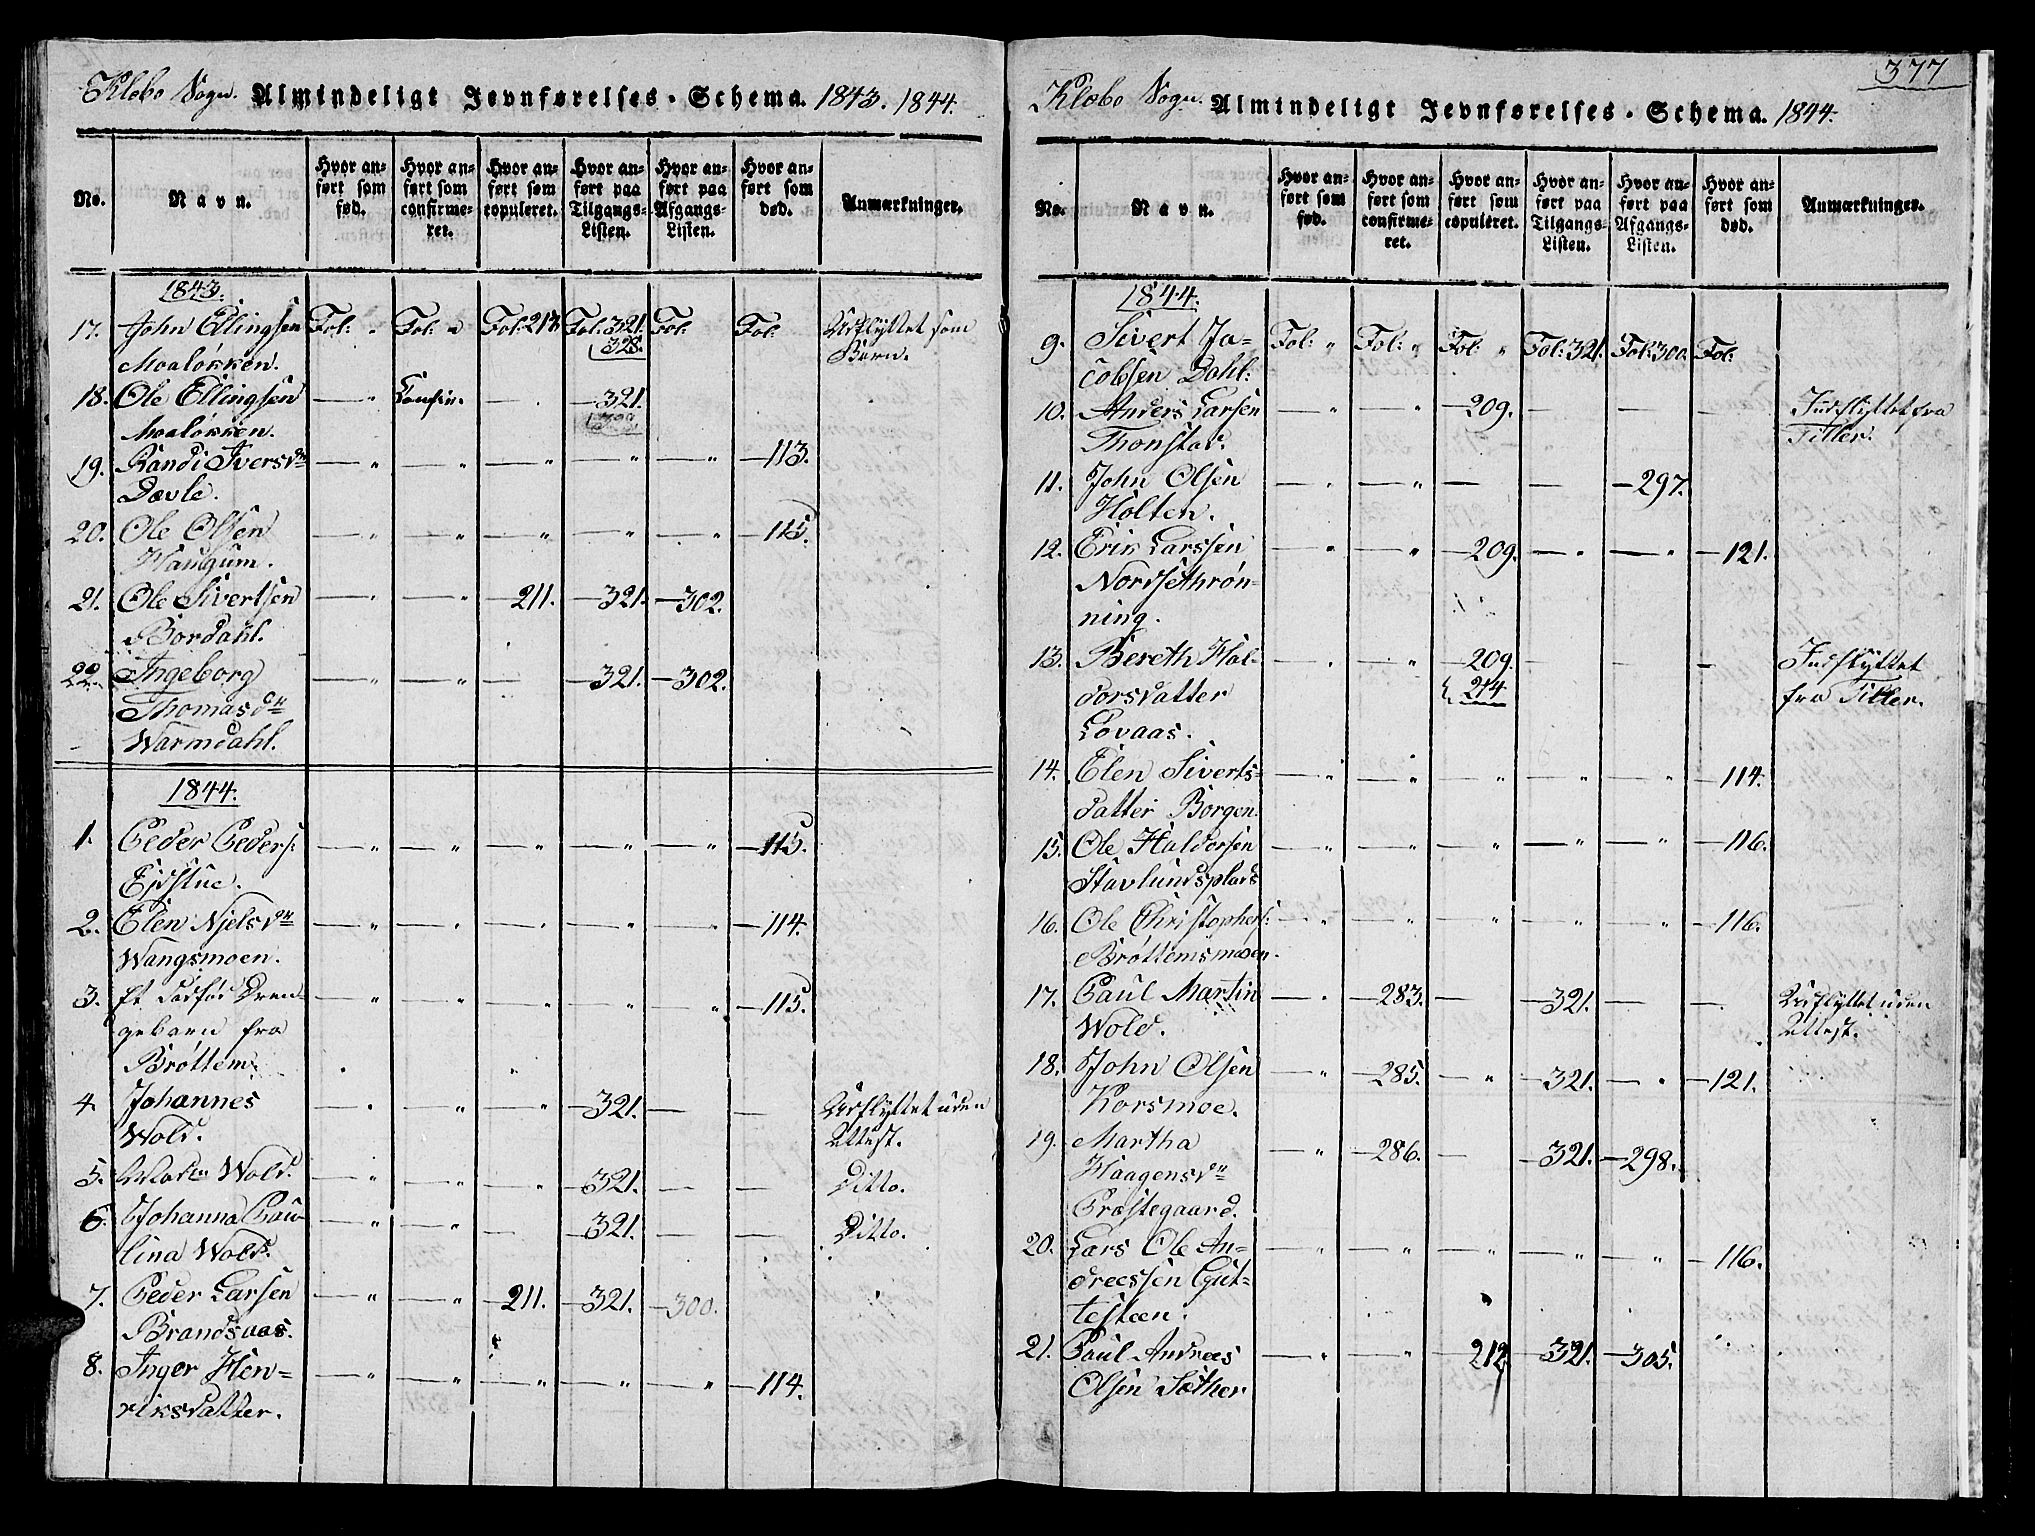 Klæbo Sogn. Almindeligt Jevnførelses-Schema. 1843. 1844.
No. Navn. Hvor anført som fød. Hvor anført som confirmeret. Hvor anført som copuleret. Hvor anført paa Tilgangs-Listen. Hvor anført paa Afgangs-Listen. Hvor anført som død. Anmærkninger.
1843.
17. John Ellingsen Fol: " Fol: " Fol: 213 Fol: 321. Fol: Fol: Udflyttet som
Moaløkken. 328. Barn.
18. Ole Ellingsen — " — — 321.
Moaløkken.
19. Randi Iversdr — " — " — " — " — " — 113.
Davle.
20. Ole Olsen — " — " — " — " — " — 115.
Haugum.
21. Ole Sivertsen — " — " — 211. — 321. — 302.
Bordahl.
22. Ingeborg — " — " — — 321. — 302.
Thomasdr
Warmdahl.
1844.
1. Peder Peders: — " — " — " — " — " — 115.
Eidstue.
2. Elen Njelsdr — " — " — " — " — " — 114.
Wangsmoen.
3. Et dødfød Dren- — " — " — " — " — " — 115.
gebarn fra
Brøttem.
4. Johannes — " — " — " — 321. — — Udflyttet uden
Wold. Attest.
5. Wold. — " — " — " — 321. — — Ditto.
6. Johanna Pau- — " — " — — 321. — — Ditto.
lina Wold.
7. Peder Larsen — " — " — 211. — 321. — 300.
Brandsaas.
8. Inger Hen- — " — " — " — " — " — 114.
riksdatter.
377
Klæbo Sogn. Almindeligt Jevnførelses-Schema. 1844.
No. Navn. Hvor anført som fød. Hvor anført som confirmeret. Hvor anført som copuleret. Hvor anført paa Tilgangs-Listen. Hvor anført paa Afgangs-Listen. Hvor anført som død. Anmærkninger.
1844.
9. Sivert Ja- Fol: " Fol: " Fol: " Fol: 321. Fol: 300. Fol:
cobsen Dahl:
10. Anders Larsen — " — " — 209. — — — Indflyttet fra
Thonstad. Tiller.
11. John Olsen — " — " — — — 297.
Holten.
12. Erik Larssen — " — " — 209. — " — " — 121.
Nordsethrøn-
ning.
13. Bereth Hal- — " — " — 209. — — — Indflyttet
dorsdatter 214 fra Tiller.
Lovaas.
14. Elen Siverts- — " — " — " — " — " — 114.
datter Borgen.
15. Ole Haldorsen — " — " — " — " — " — 116.
Stavlundsplads
16. Ole Christophers: — " — " — " — " — " — 116.
Brøttemsmoen.
17. Paul Martin — " — 283. — — 321. — — Udflyttet uden
Wold. Attest.
18. John Olsen — " — 285. — " — 321. — " — 121.
Korsmoe.
19. Martha — " — 286. — — 321. — 298.
Haagensdr
Præstegaard.
20. Lars Ole An- — " — " — " — " — " — 116.
dreessen Gut-
testeen.
21. Paul Andreas — " — " — 212. — 321. — 305.
Olsen Sæther